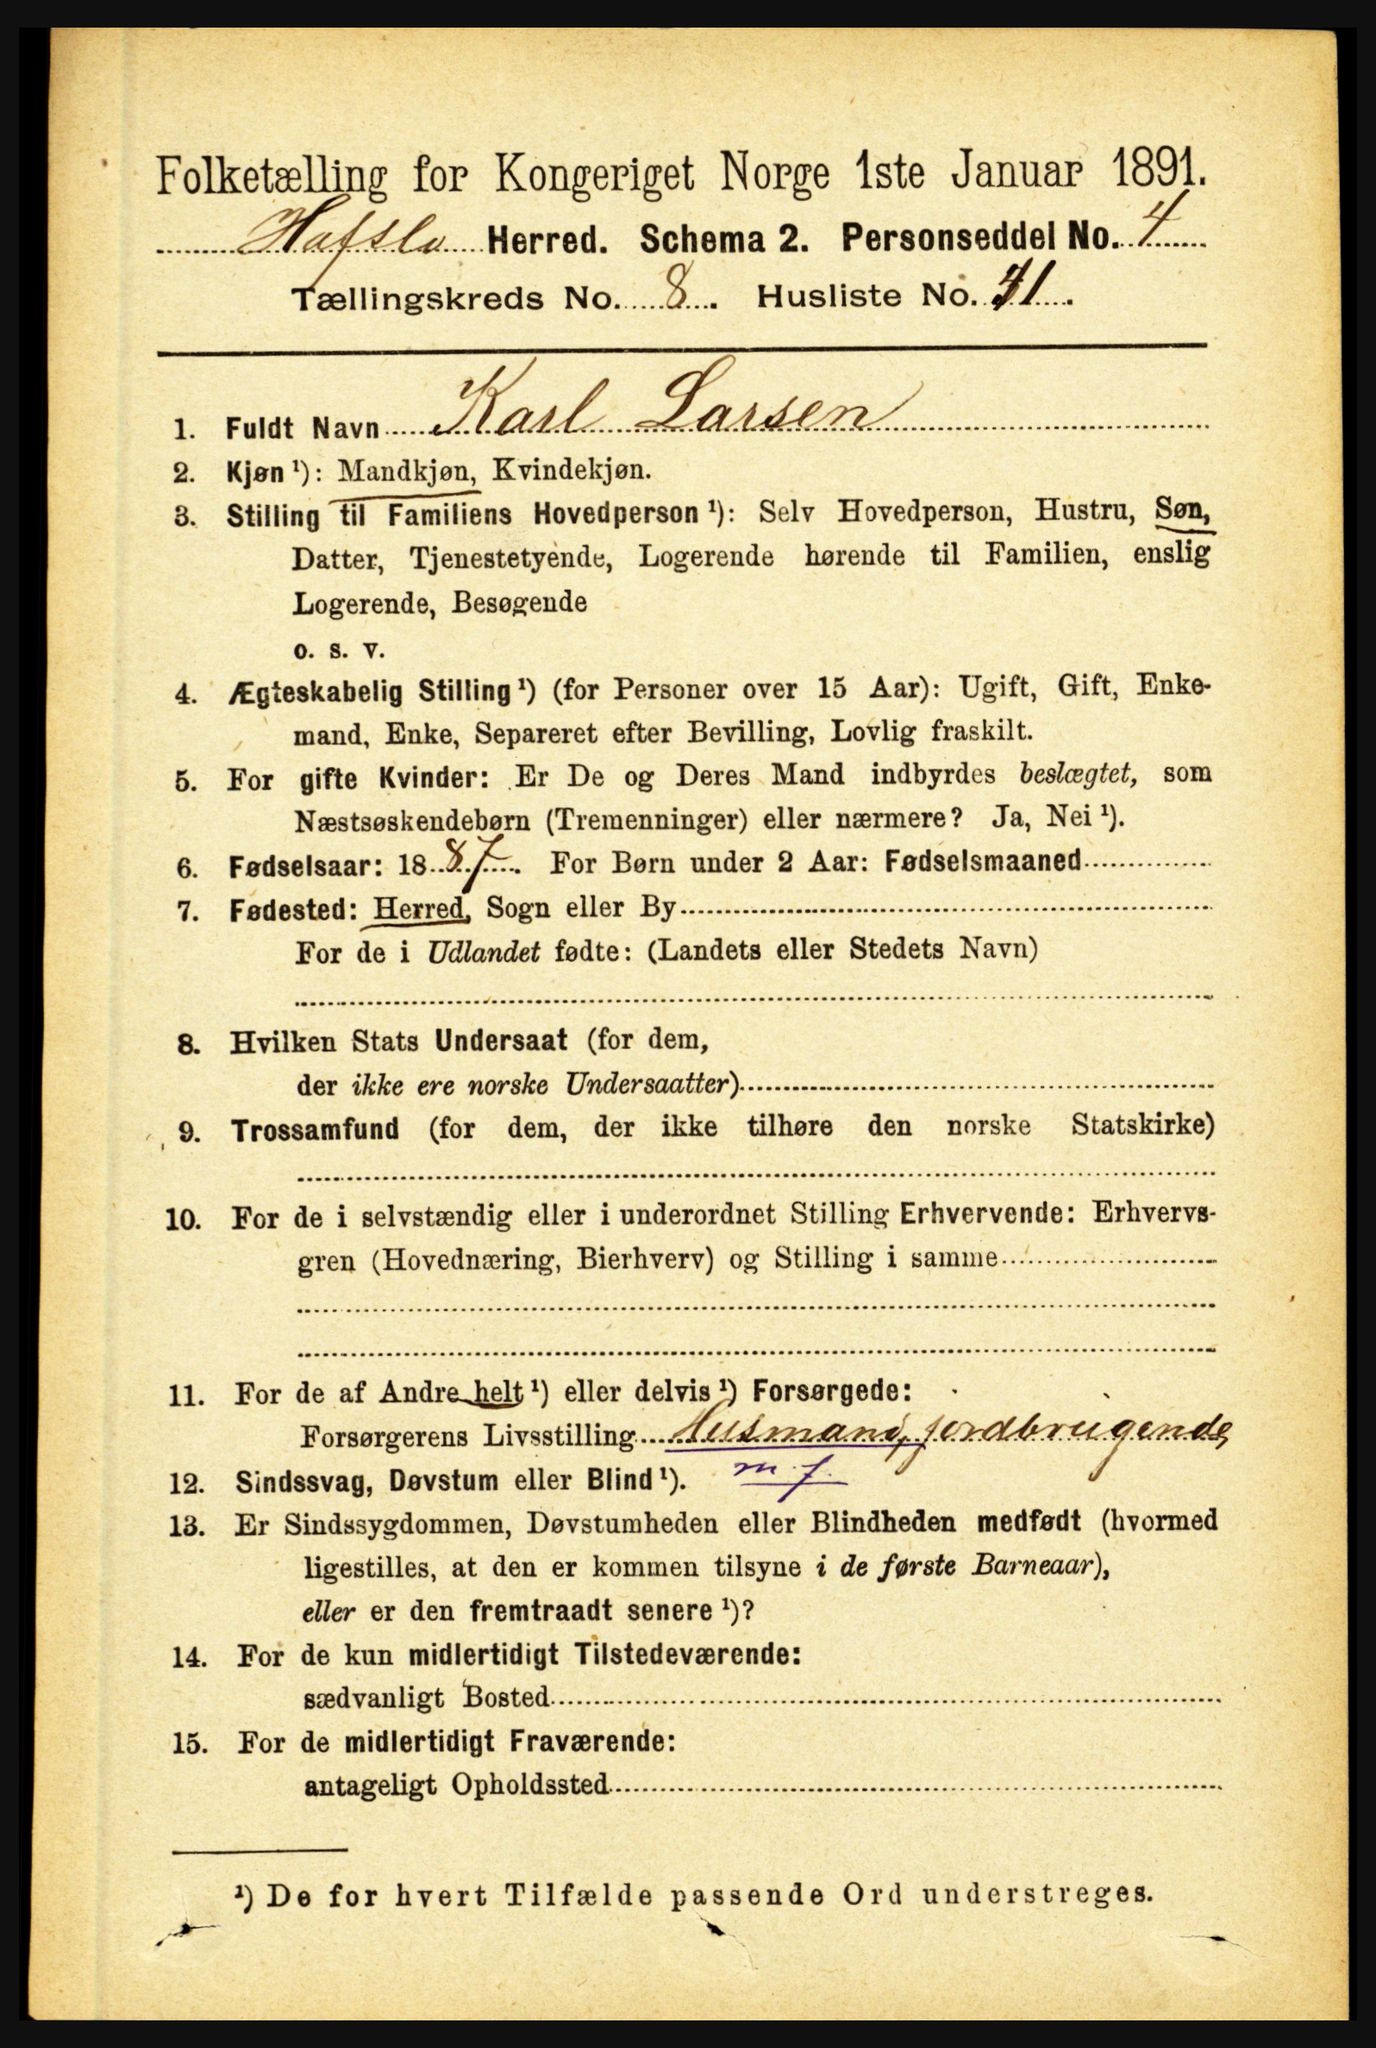 Folketælling for Kongeriget Norge 1ste Januar 1891.
Hafslo Herred. Schema 2. Personseddel No. 4
Tællingskreds No. 8. Husliste No. 41.
1. Fuldt Navn Karl Larsen
2. Kjøn ¹): Mandkjøn, Kvindekjøn.
3. Stilling til Familiens Hovedperson ¹): Selv Hovedperson, Hustru, Søn,
Datter, Tjenestetyende, Logerende hørende til Familien, enslig
Logerende, Besøgende
o. s. v.
4. Ægteskabelig Stilling ¹) (for Personer over 15 Aar): Ugift, Gift, Enke-
mand, Enke, Separeret efter Bevilling, Lovlig fraskilt.
5. For gifte Kvinder: Er De og Deres Mand indbyrdes beslægtet, som
Næstsøskendebørn (Tremenninger) eller nærmere? Ja, Nei ¹).
6. Fødselsaar: 1887. For Børn under 2 Aar: Fødselsmaaned
7. Fødested: Herred, Sogn eller By
For de i Udlandet fødte: (Landets eller Stedets Navn)
8. Hvilken Stats Undersaat (for dem,
der ikke ere norske Undersaatter)
9. Trossamfund (for dem, der ikke tilhøre den norske Statskirke)
10. For de i selvstændig eller i underordnet Stilling Erhvervende: Erhvervs-
gren (Hovednæring, Bierhverv) og Stilling i samme
11. For de af Andre helt ¹) eller delvis ¹) Forsørgede:
Forsørgerens Livsstilling Husmand, jordbrugende,
m. j.
12. Sindssvag, Døvstum eller Blind ¹).
13. Er Sindssygdommen, Døvstumheden eller Blindheden medfødt (hvormed
ligestilles, at den er kommen tilsyne i de første Barneaar),
eller er den fremtraadt senere ¹)?
14. For de kun midlertidigt Tilstedeværende:
sædvanligt Bosted
15. For de midlertidigt Fraværende:
antageligt Opholdssted
¹) De for hvert Tilfælde passende Ord understreges.